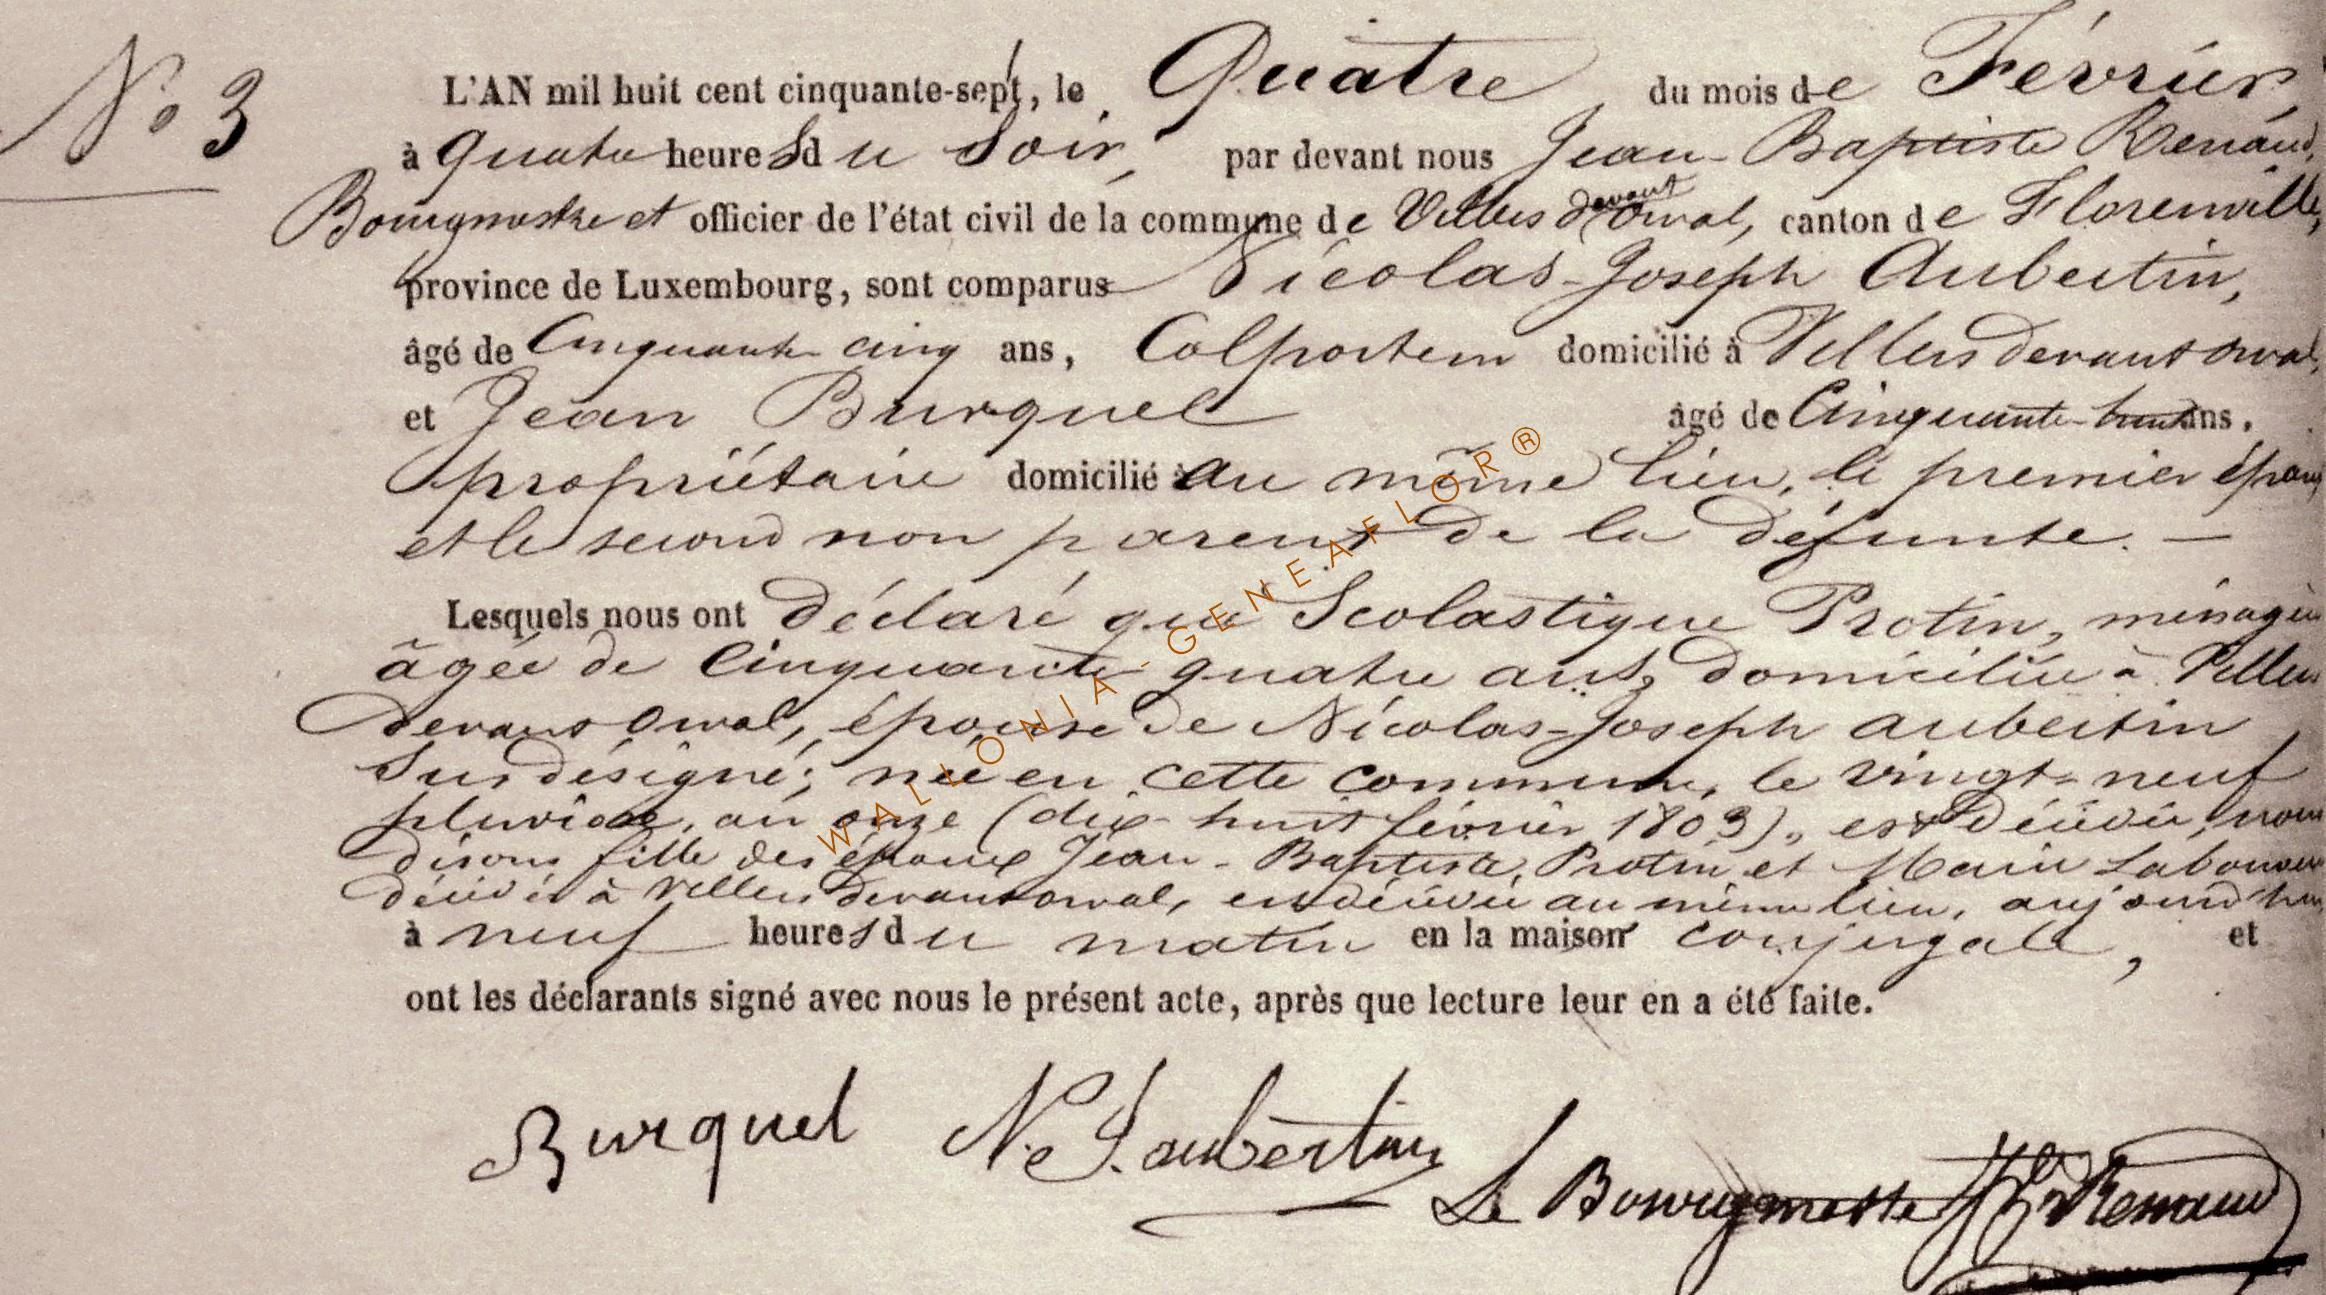 N° 3
L'AN mil huit cent cinquante-sept, le Quatre du mois de Février,
à quatre heures du Soir, par devant nous Jean-Baptiste Renaud,
Bourgmestre et officier de l'état civil de la commune de Villers devant Orval, canton de Florenville,
province de Luxembourg, sont comparus Nicolas-Joseph Aubertin,
âgé de Cinquante cinq ans, Colporteur domicilié à Villers devant orval,
et Jean Burquel âgé de Cinquante-huit ans,
propriétaire domicilié au même lieu, le premier époux
et le second non parent de la défunte. —
Lesquels nous ont déclaré que Scolastique Protin, ménagère
âgée de cinquante quatre ans, domiciliée à Villers
devant Orval, épouse de Nicolas-Joseph aubertin
Susdésigné; née en cette commune, le vingt-neuf
pluviose, an onze (dix-huit février 1803), est décédée, nous
disons fille des époux Jean-Baptiste Protin et Marie
décédés à Villers devant orval, est décédée au même lieu, aujourd'hui
à neuf heures du matin en la maison conjugale, et
ont les déclarants signé avec nous le présent acte, après que lecture leur en a été faite.
Burquel N. J. aubertin
Le Bourgmestre Renaud
WALLONIA-GENEAFLOR®